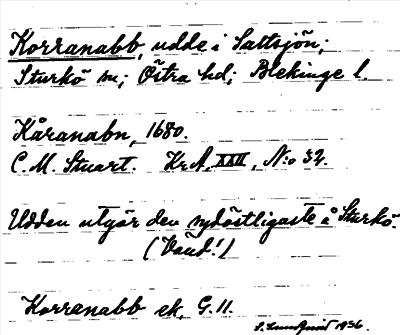 Korranabb, udde i Saltsjön;
Sturkö sn; Östra hd; Blekinge l.
Kåranabn, 1680.
C. M. Stuart. KrA, XXII, N:o 32.
Udden utgör den sydöstligaste å Sturkö.
(Vänd!)
Korranabb ek, G. 11.
S. Lundquist 1936.